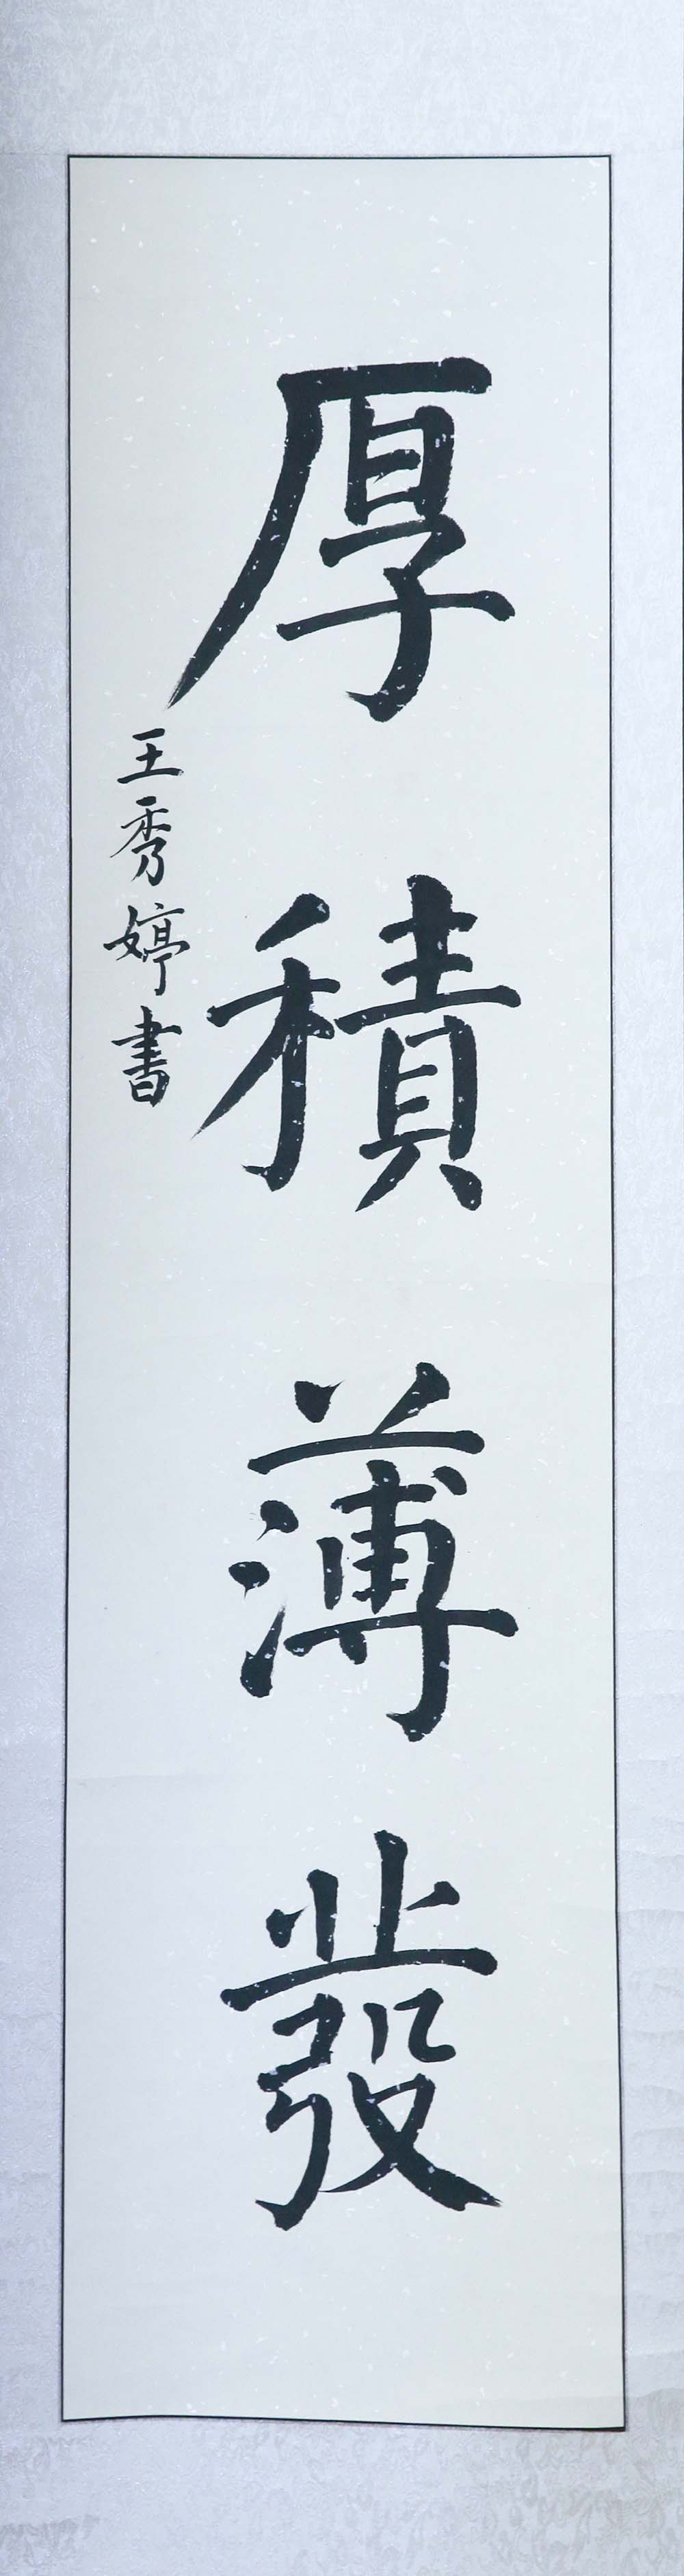 厚積薄發
王秀婷書